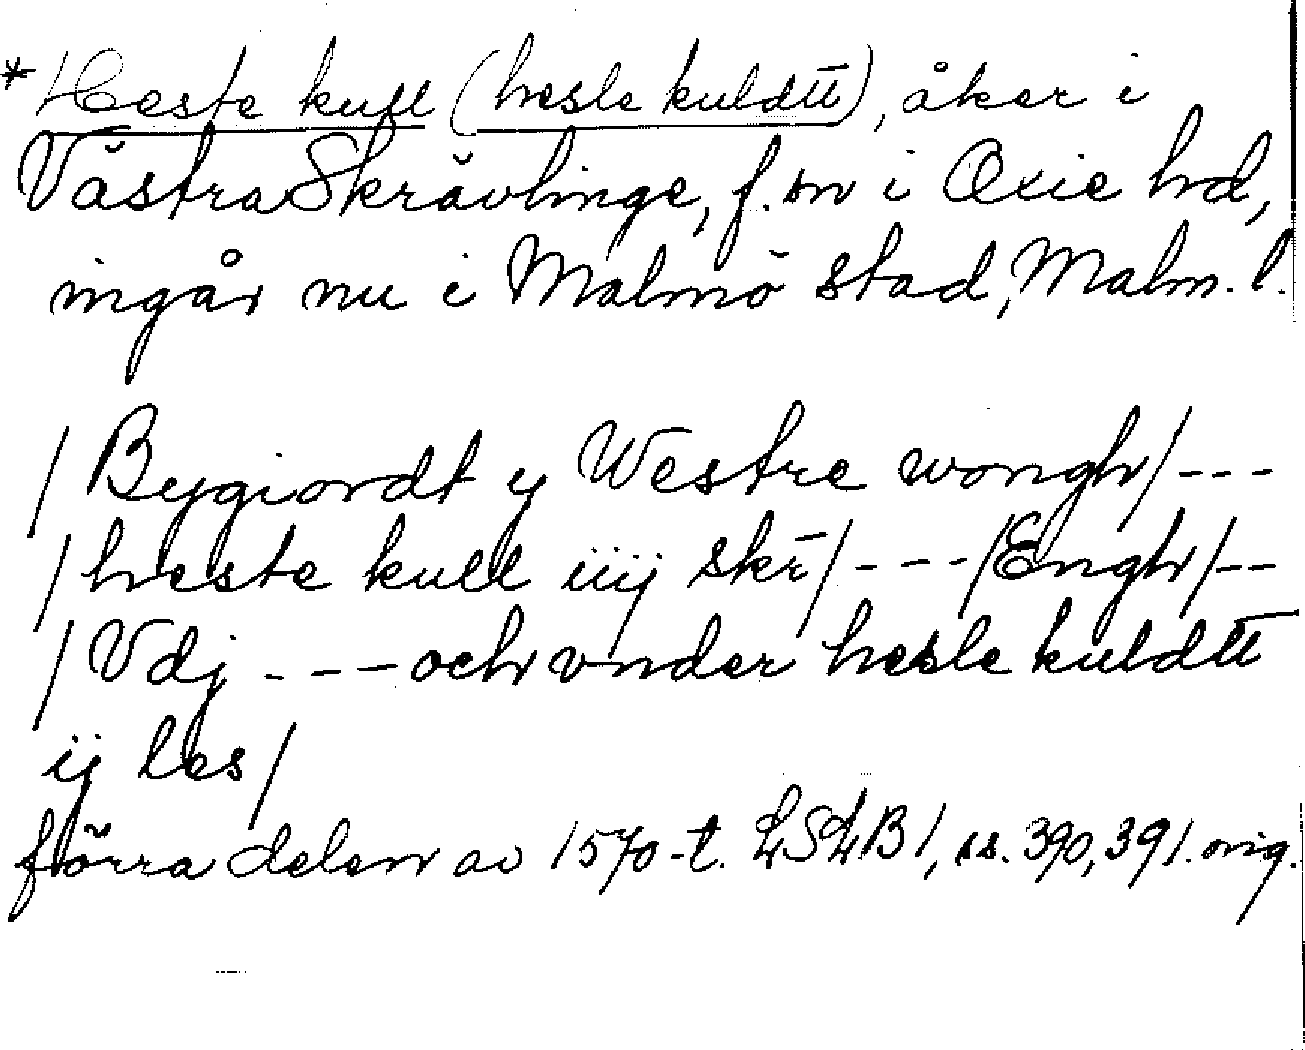 *Heste kull (hesle kuldtt), åker i
Västra Skrävlinge, f. sn i Oxie hd,
ingår nu i Malmö stad, Malm. l.
/Bygiordt y Westre wongh/---
/heste kull iiij skr̄/---/Engh/--
/Vdj --- och vnder hesle kuldtt
ij les/
förra delen av 1570-t. LSLB 1, ss. 390, 391. orig.